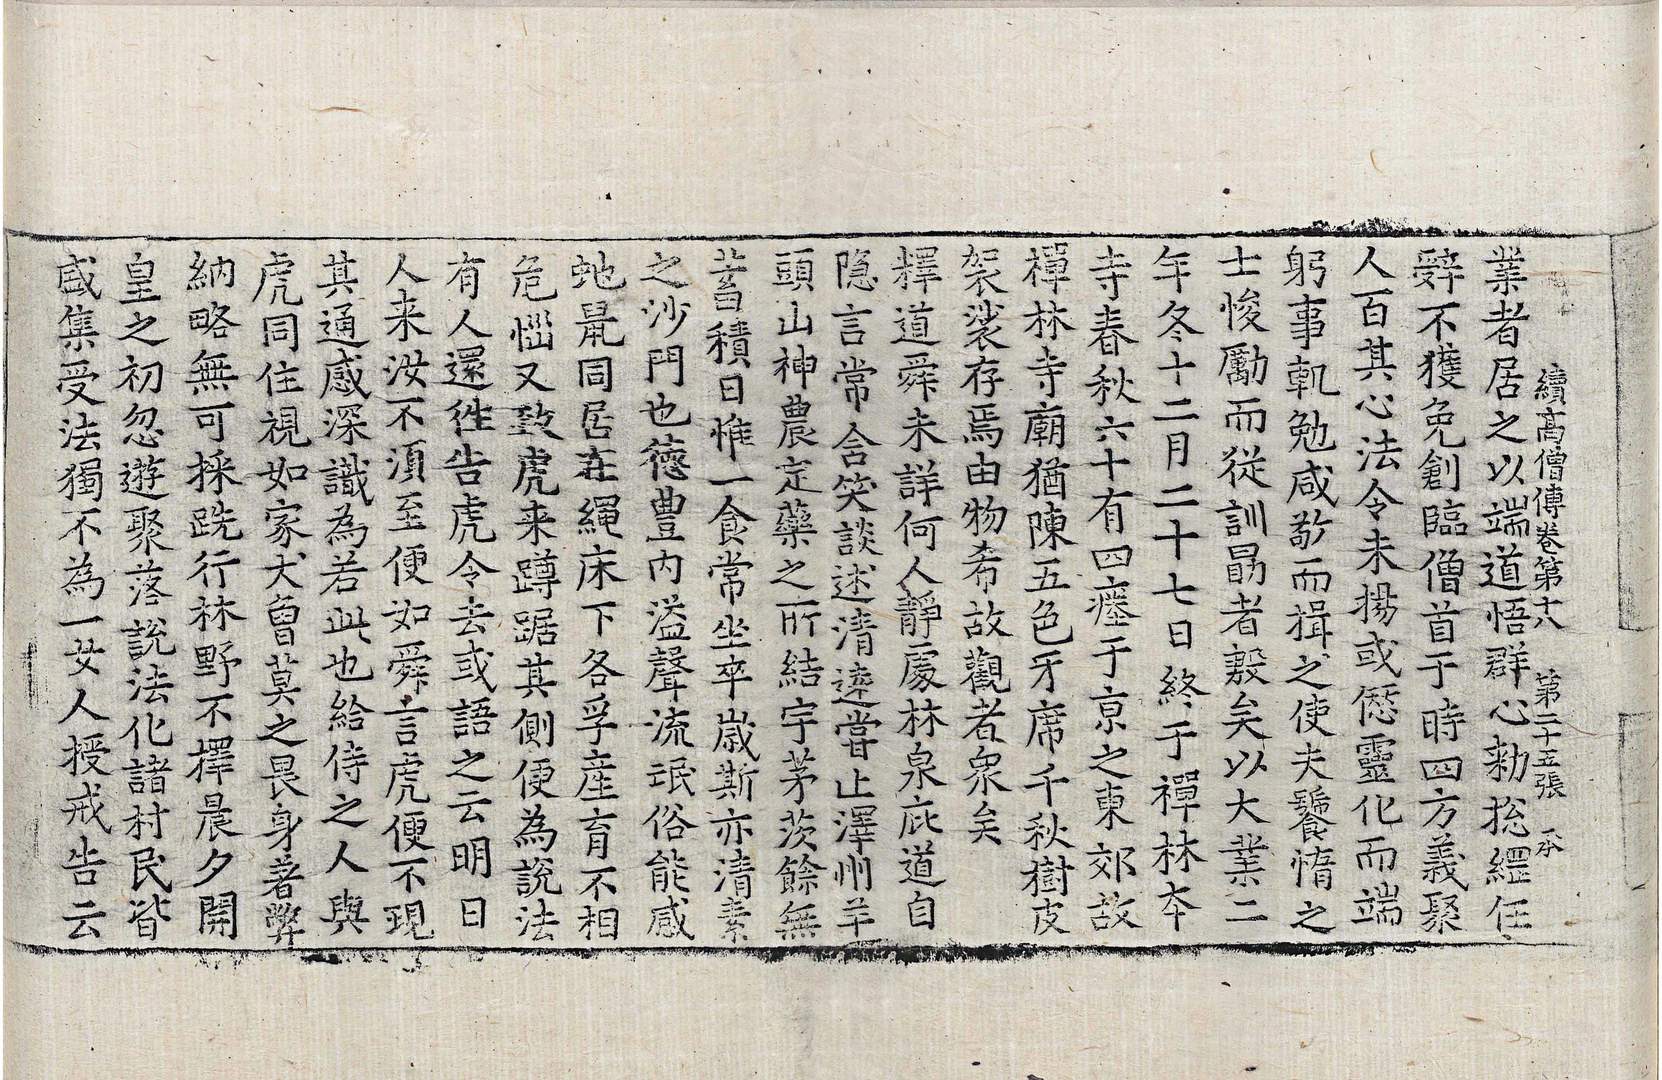 續高僧傳卷第十八　第二十五張　承
業者居之以端道悟群心勑揔經任
辝不獲免創臨僧首于時四方義聚
人百其心法令未揚或僁靈化而端
躬事軌勉咸敬而揖之使夫饕惰之
士悛勵而從訓勗者穀矣以大業二
年冬十二月二十七日終于禪林本
寺春秋六十有四瘞于京之東郊故
禪林寺廟猶陳五色牙席千秋樹皮
袈裟存焉由物希故觀者衆矣
釋道舜未詳何人靜處林泉庇道自
隐言常含笑談述清遠嘗止澤州羊
頭山神農定藥之所結宇茅茨餘無
蓄積日惟一食常坐卒歲斯亦清素
之沙門也德豊内溢聲流氓俗能感
虵鼠同居在繩床下各孚産育不相
危惱又致虎来蹲踞其側便為說法
有人還徃告虎令去或語之云明日
人来汝不湏至便如舜言虎便不現
其通感深識為若此也給侍之人與
虎同住視如家犬曽莫之畏身著弊
納略無可採跣行林野不擇晨夕開
皇之初忽遊聚落說法化諸村民皆
咸集受法獨不為一女人授戒告云